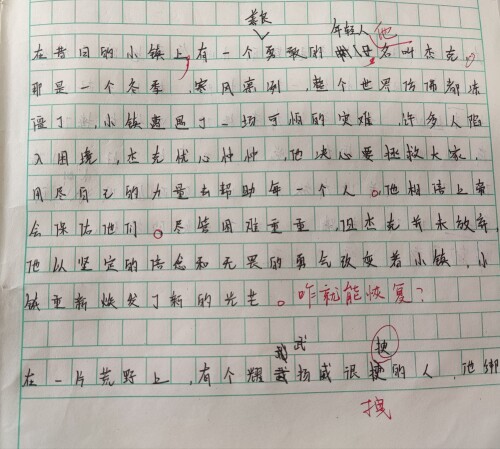 善良
年轻人 他
在昔日的小镇上,有一个勇敢的名叫杰克。
那是一个冬季,寒风凛冽,整个世界仿佛都冻
僵了,小镇遭遇了一场可怕的灾难,许多人陷
入困境,杰克忧心忡忡,他决心要拯救大家,
用尽自己的力量去帮助每一个人。他相信上帝
会保佑他们。尽管困难重重,但杰克并未放弃,
他以坚定的信念和无畏的勇气改变着小镇,小
镇重新焕发了新的光芒。咋就能恢复?
武 拽
在一片荒野上,有个耀武扬威很的人,他绑
拽